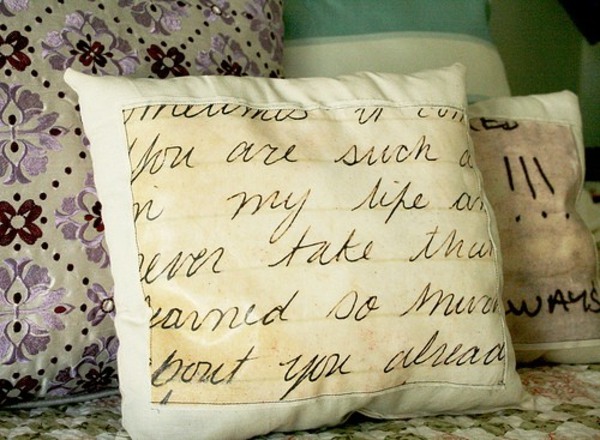 ometimes it com
You are such a
in my life an
never take that
learned so much
about you alread
ED
WAYS